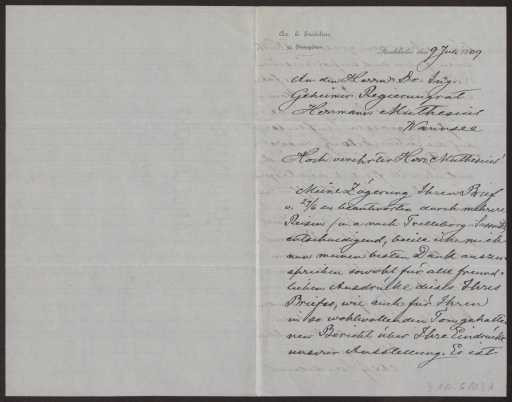 Stockholm den 9 Juli 1909
An den Herrn Dr. Ing.
Geheimer Regierungsrat
Herrmann Muthesius
Wannsee
Hoch verehrter Herr Muthesius!
Meine Zögerung Ihren Brief
v. 27/6 zu beantworten durch mehrere
Reisen (u. a. nach Trelleborg-Sassnitz)
entschuldigend, beeile ich mich
nun meinen besten Dank auszu-
sprechen sowohl für alle freund-
lichen Ausdrücke dieses Ihres
Briefes, wie auch für Ihren
in so wohlwollendem Ton gehalte-
nen Bericht über Ihre Eindrücke
unserer Ausstellung. Es ist